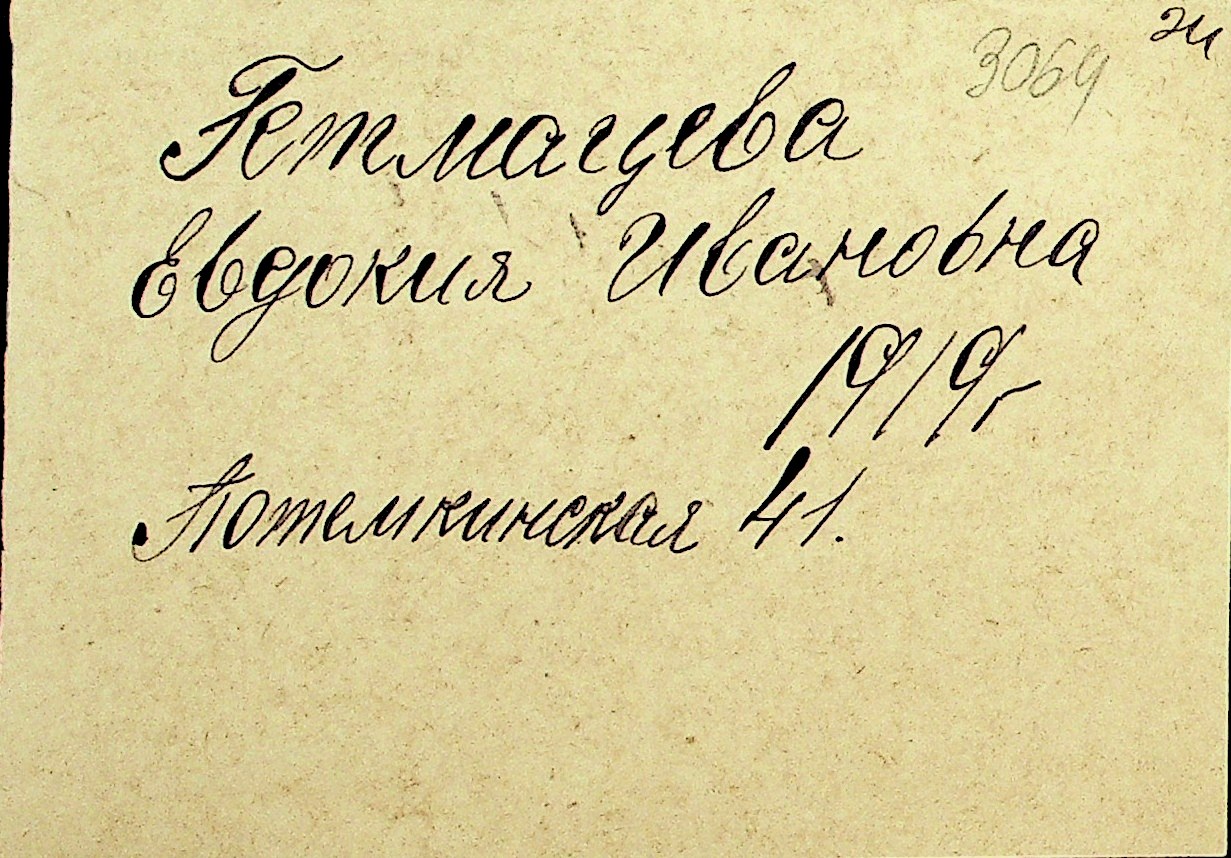 3069
Гетмацева
Евдокия Ивановна
1919г
Потемкинская 41.